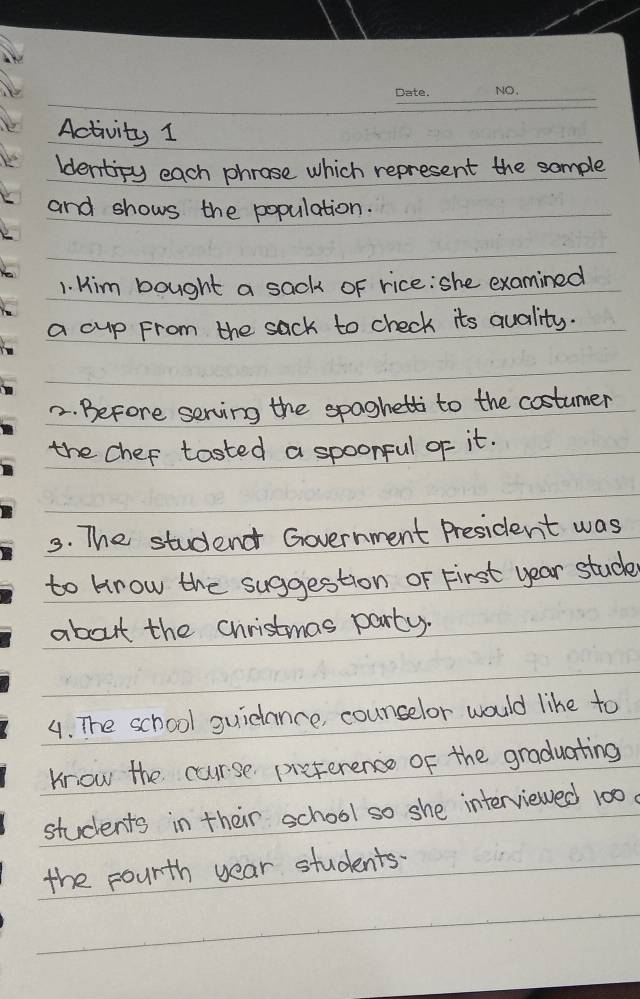 Date. NO.
Activity 1
Identify each phrase which represent the sample
and shows the population.
1. Kim bought a sack of rice: she examined
a cup from the sack to check its quality.
2. Before serving the spaghetti to the costumer
the chef tasted a spoonful of it.
3. The student Government President was
to know the suggestion of first year
about the christmas party.
4. The school guidance, counselor would like to
know the course preference of the graduating
students in their school so she interviewed 100
the fourth year students.